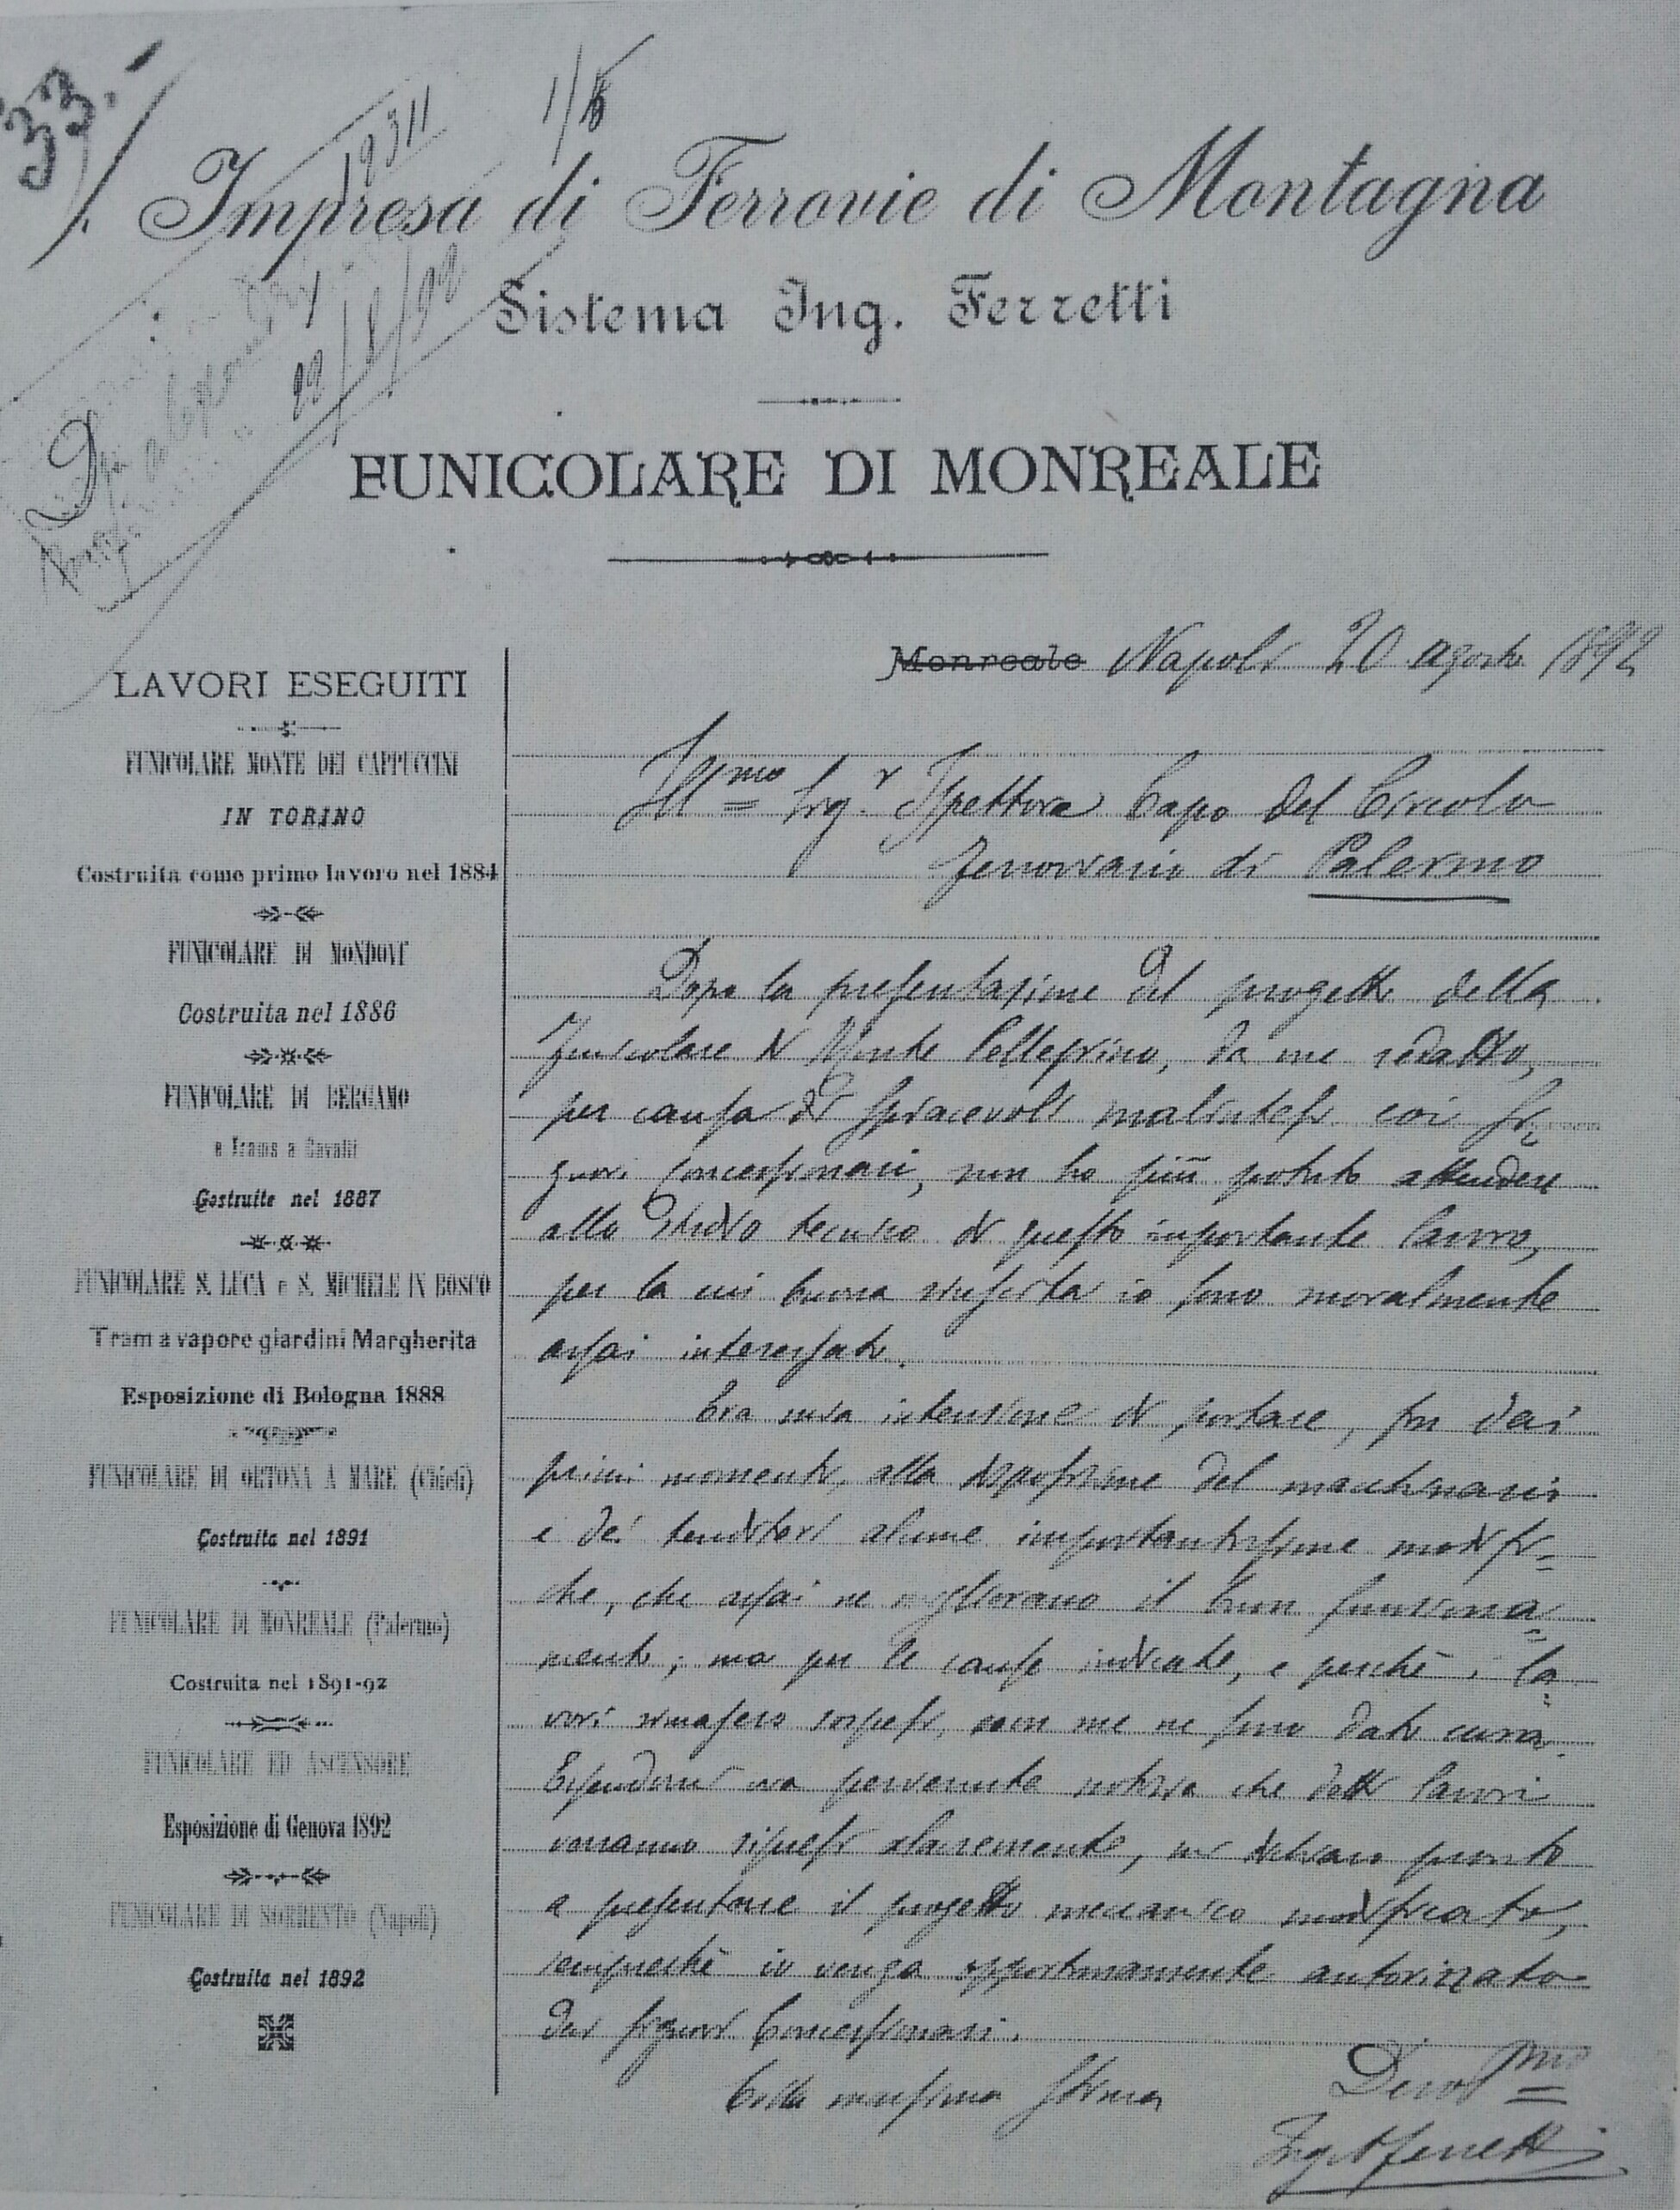 33.
19311
1/
Impresa di Ferrovie di Montagna
Sistema Ing. Ferretti
22/8/92
FUNICOLARE DI MONREALE
Monreale Napoli 20 agosto 1892
LAVORI ESEGUITI
FUNICOLARE MONTE DEI CAPPUCCINI
IN TORINO
Costruita come primo lavoro nel 1884
FUNICOLARE DI MONDOVÌ
Costruita nel 1886
FUNICOLARE DI BERGAMO
e Trams a Cavalli
Costruite nel 1887
FUNICOLARE S. LUCA e S. MICHELE IN BOSCO
Tram a vapore giardini Margherita
Esposizione di Bologna 1888
FUNICOLARE DI ORTONA A MARE (Chieti)
Costruita nel 1891
FUNICOLARE DI MONREALE (Palermo)
Costruita nel 1891-92
FUNICOLARE ED ASCENSORE
Esposizione di Genova 1892
FUNICOLARE DI SORRENTO (Napoli)
Costruita nel 1892
Ill.mo Sig.r Ispettore Capo del Circolo
Ferroviario di Palermo
Dopo la presentazione del progetto della
Funicolare di Monte Pellegrino, da me redatto,
per causa di spiacevoli malintesi coi Si=
gnori Concessionari, non ho più potuto attendere
allo studio tecnico di questo importante lavoro,
per la cui buona riuscita io sono moralmente
assai interessato.
Era mia intenzione di portare, fin dai
primi momenti, alla disposizione del macchinario
e de' tenditori alcune importantissime modifi=
che, che assai ne migliorano il buon funziona=
mento; ma per le cause indicate, e perchè i la=
vori rimasero sospesi, non me ne sono dato cura.
Essendomi ora pervenuta notizia che detti lavori
verranno ripresi alacremente, mi dichiaro pronto
a presentare il progetto meccanico modificato,
sempreché io venga opportunamente autorizzato
dai signori Concessionari.
Colla massima stima
Devot.mo
Ing. A Ferretti